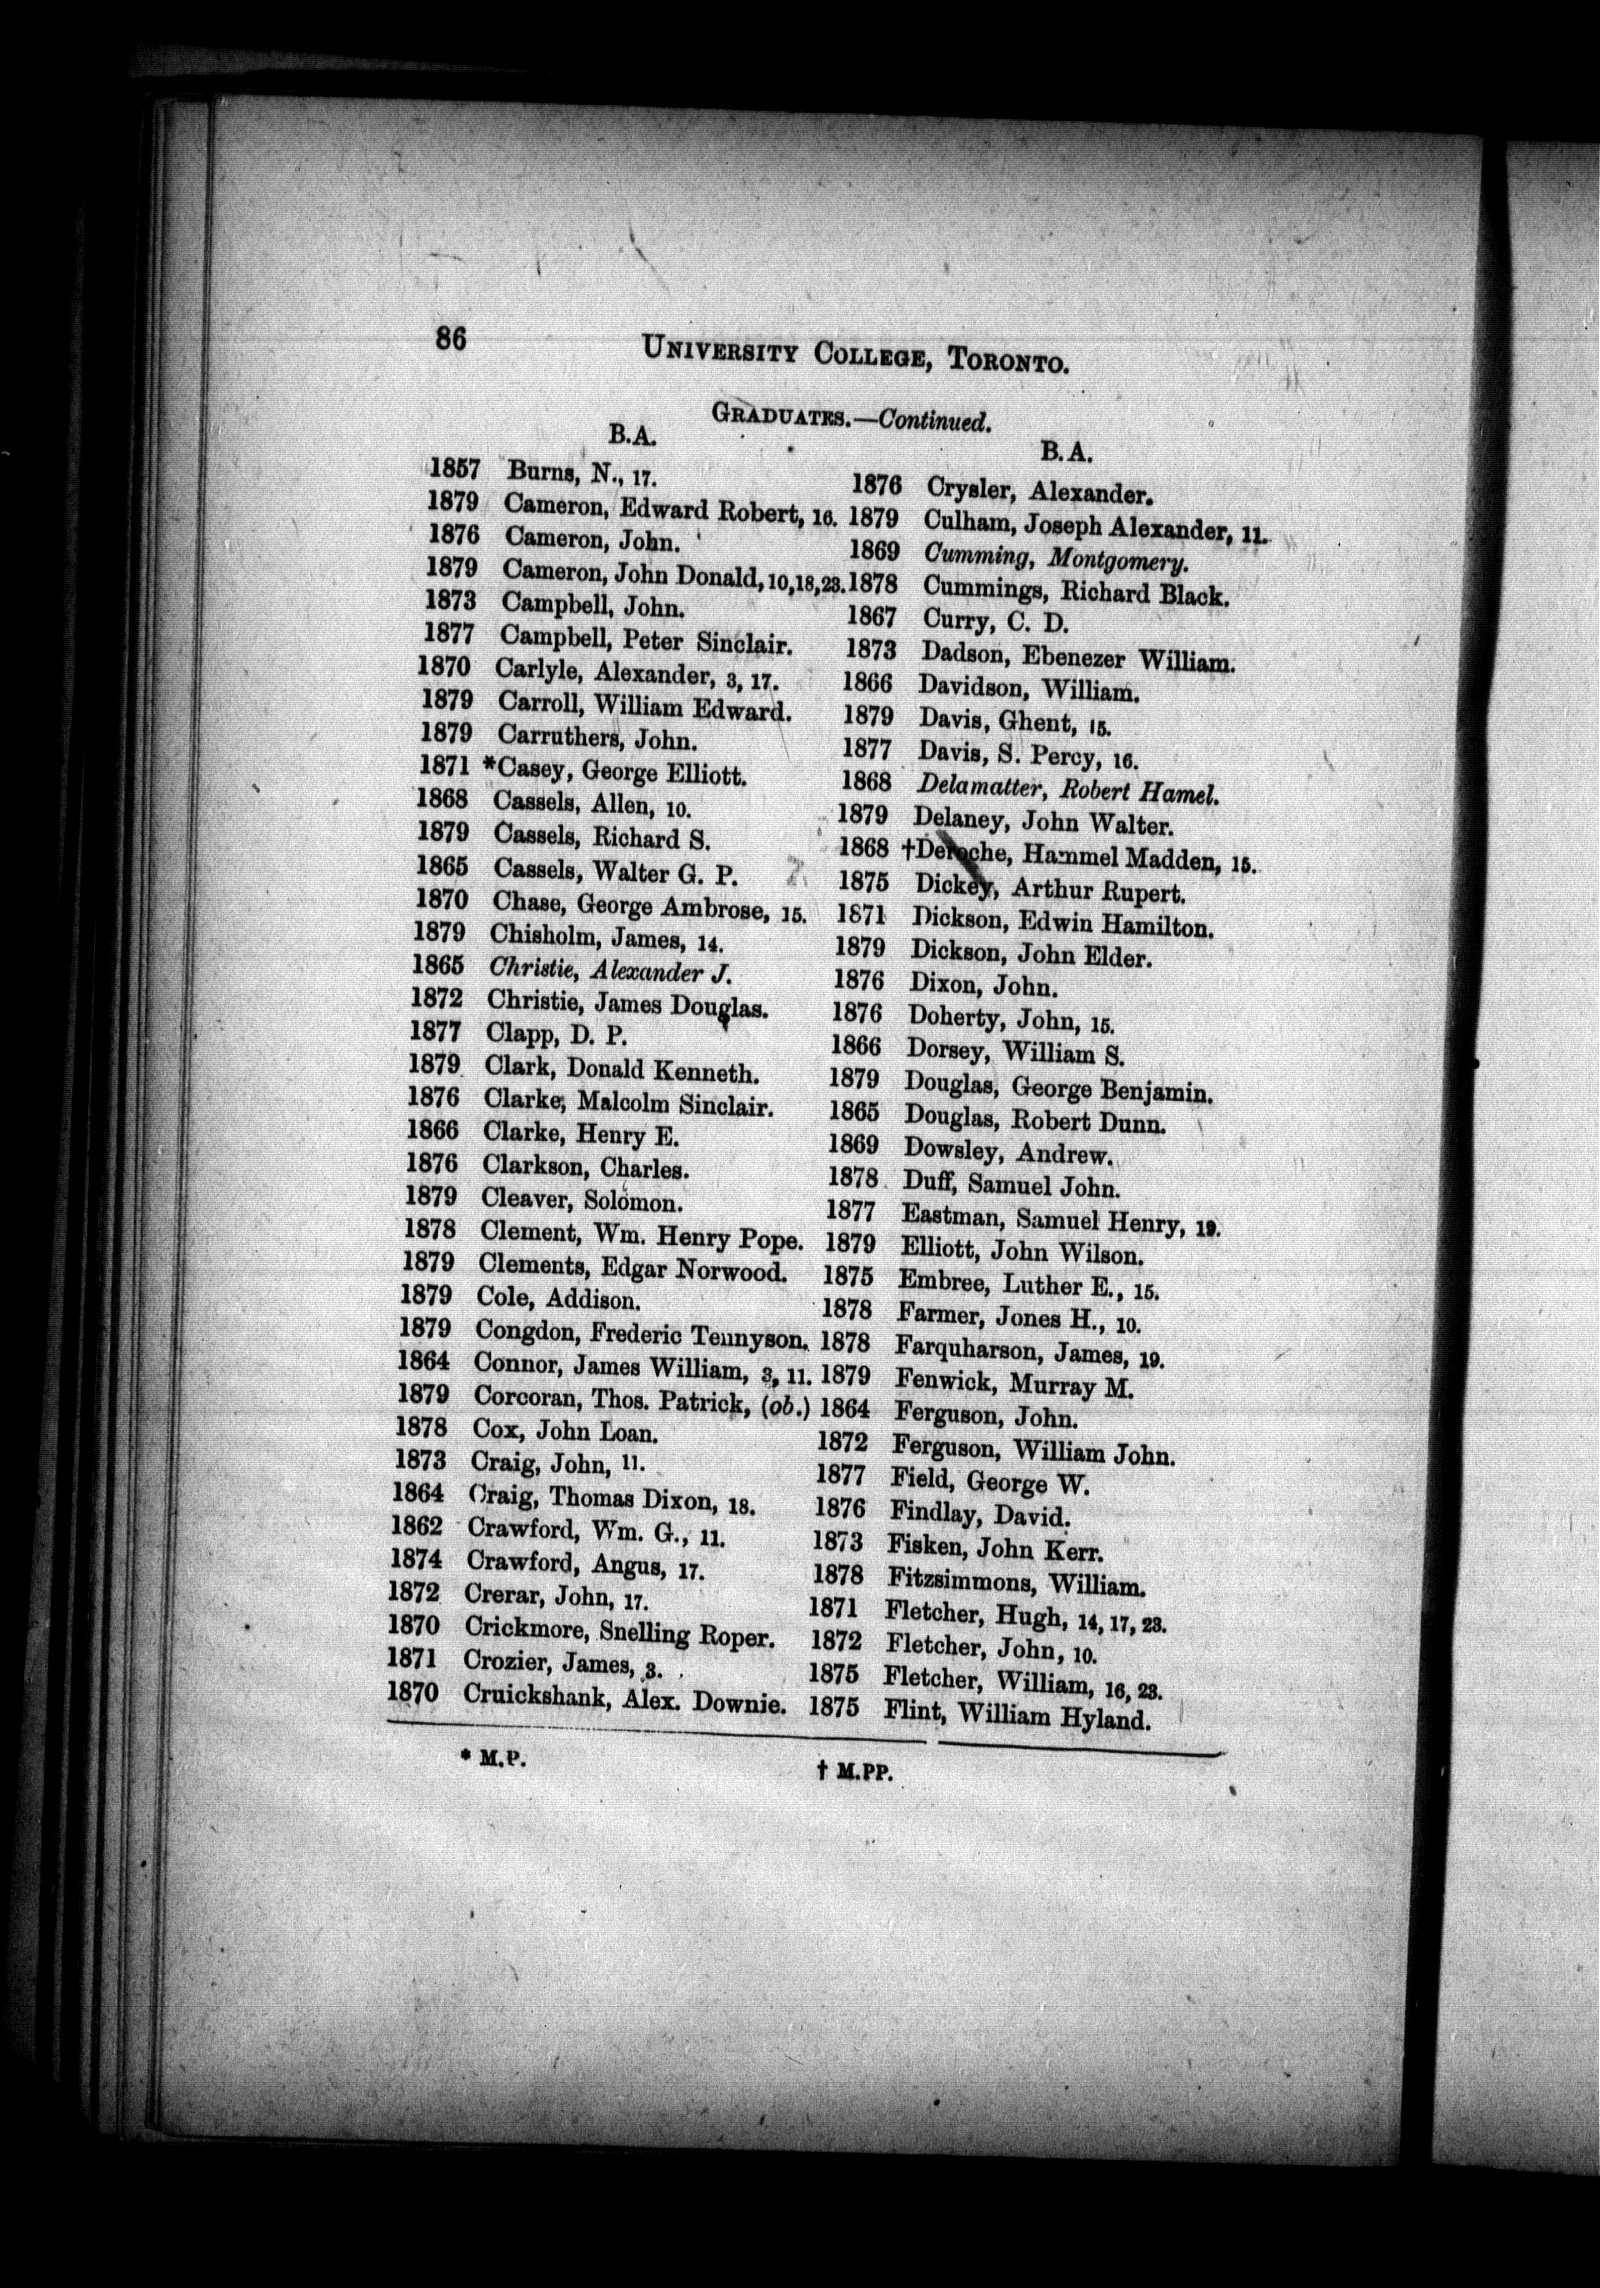 86
UNIVERSITY COLLEGE, TORONTO.
GRADUATES.—Continued.
B.A.
1857 Burns, N., 17.
1879 Cameron, Edward Robert, 16.
1876 Cameron, John.
1879 Cameron, John Donald, 10,18,23.
1873 Campbell, John.
1877 Campbell, Peter Sinclair.
1870 Carlyle, Alexander, 3, 17.
1879 Carroll, William Edward.
1879 Carruthers, John.
1871 *Casey, George Elliott.
1868 Cassels, Allen, 10.
1879 Cassels, Richard S.
1865 Cassels, Walter G. P.
1870 Chase, George Ambrose, 15.
1879 Chisholm, James, 14.
1865 Christie, Alexander J.
1872 Christie, James Douglas.
1877 Clapp, D. P.
1879 Clark, Donald Kenneth.
1876 Clarke, Malcolm Sinclair.
1866 Clarke, Henry E.
1876 Clarkson, Charles.
1879 Cleaver, Solomon.
1878 Clement, Wm. Henry Pope.
1879 Clements, Edgar Norwood.
1879 Cole, Addison.
1879 Congdon, Frederic Tennyson.
1864 Connor, James William, 3, 11.
1879 Corcoran, Thos. Patrick, (ob.)
1878 Cox, John Loan.
1873 Craig, John, 11.
1864 Craig, Thomas Dixon, 18.
1862 Crawford, Wm. G., 11.
1874 Crawford, Angus, 17.
1872 Crerar, John, 17.
1870 Crickmore, Snelling Roper.
1871 Crozier, James, 3.
1870 Cruickshank, Alex. Downie.
B.A.
1876 Crysler, Alexander.
1879 Culham, Joseph Alexander, 11.
1869 Cumming, Montgomery.
1878 Cummings, Richard Black.
1867 Curry, C. D.
1873 Dadson, Ebenezer William.
1866 Davidson, William.
1879 Davis, Ghent, 15.
1877 Davis, S. Percy, 16.
1868 Delamatter, Robert Hamel.
1879 Delaney, John Walter.
1868 †Deroche, Hammel Madden, 15.
1875 Dickey, Arthur Rupert.
1871 Dickson, Edwin Hamilton.
1879 Dickson, John Elder.
1876 Dixon, John.
1876 Doherty, John, 15.
1866 Dorsey, William S.
1879 Douglas, George Benjamin.
1865 Douglas, Robert Dunn.
1869 Dowsley, Andrew.
1878 Duff, Samuel John.
1877 Eastman, Samuel Henry, 19.
1879 Elliott, John Wilson.
1875 Embree, Luther E., 15.
1878 Farmer, Jones H., 10.
1878 Farquharson, James, 19.
1879 Fenwick, Murray M.
1864 Ferguson, John.
1872 Ferguson, William John.
1877 Field, George W.
1876 Findlay, David.
1873 Fisken, John Kerr.
1878 Fitzsimmons, William.
1871 Fletcher, Hugh, 14, 17, 23.
1872 Fletcher, John, 10.
1875 Fletcher, William, 16, 23.
1875 Flint, William Hyland.
* M.P.
† M.PP.